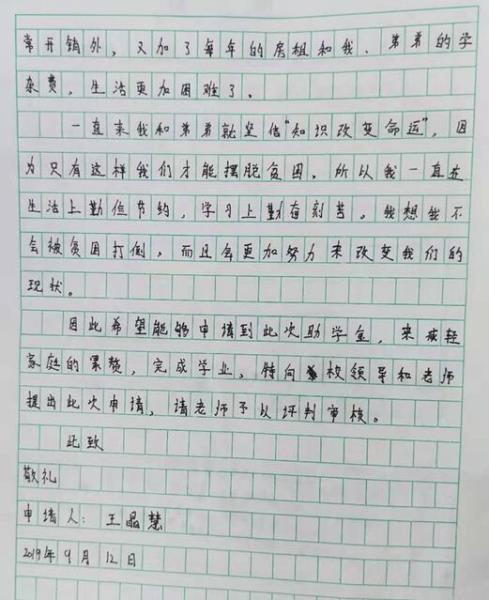 常开销外，又加了每年的房租和我、弟弟的学
杂费，生活更加困难了。
一直来我和弟弟就坚信"知识改变命运"，因
为只有这样我们才能摆脱贫困。所以我一直在
生活上勤俭节约，学习上勤奋刻苦。我想我不
会被贫困打倒，而且会更加努力来改变我们的
现状。
因此希望能够申请到此次助学金，来减轻
家庭的累赘，完成学业，特向校领导和老师
提出此次申请，请老师予以评判审核。
此致
敬礼
申请人：王晶慧
2019年9月12日